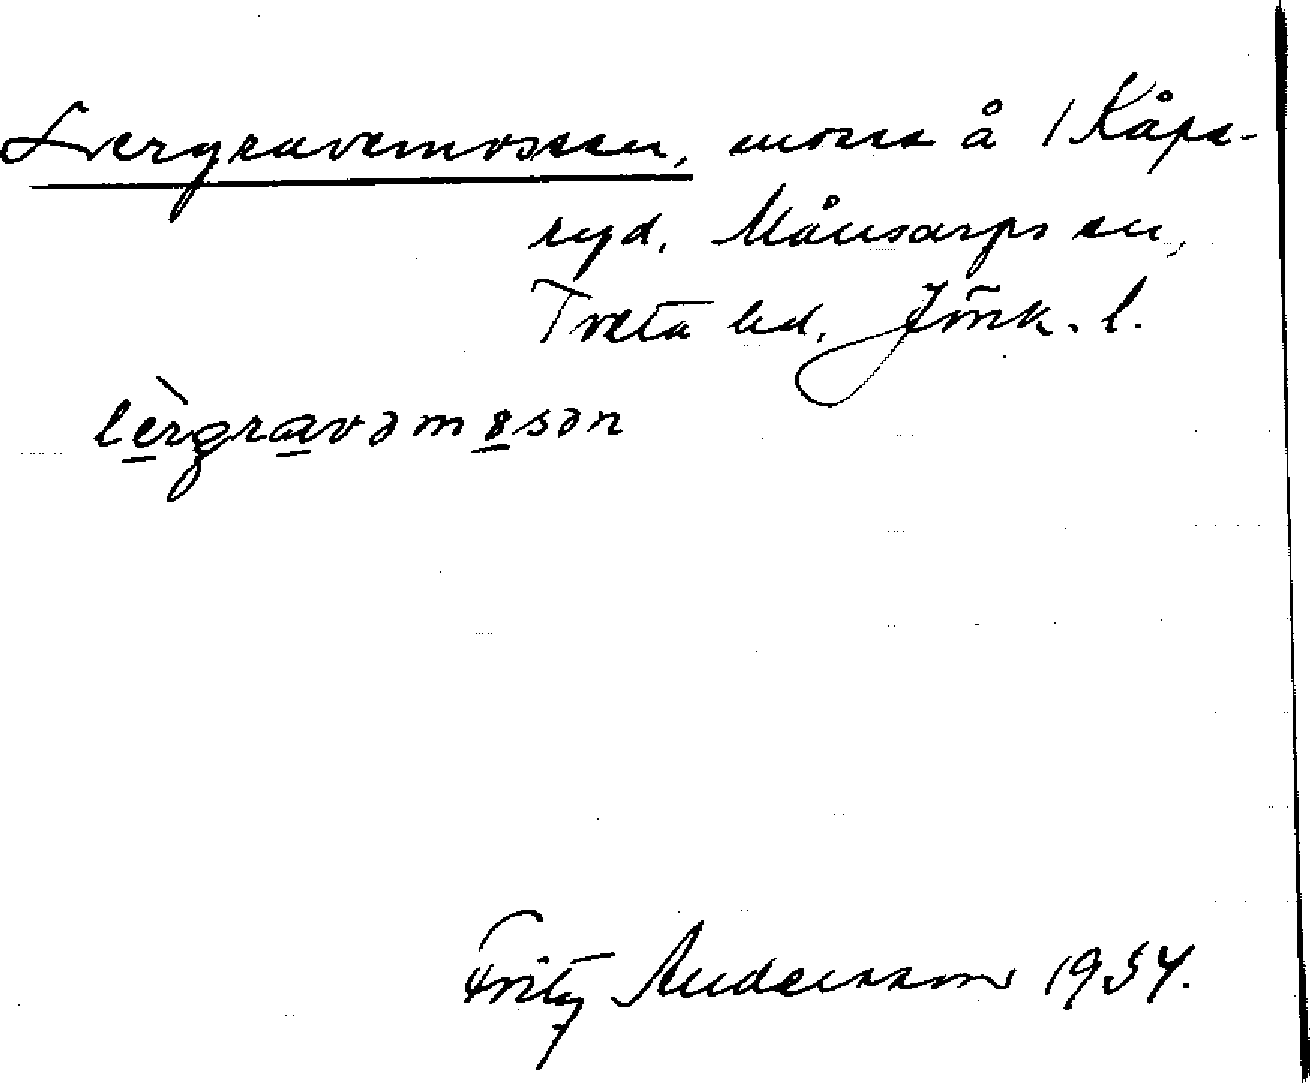 Lergravemossen, mosse å 1 Kåpe-
ryd, Månsarps sn,
Tveta hd, Jönk. l.
lèrgravəm8sən
Fritz Andersson 1934.